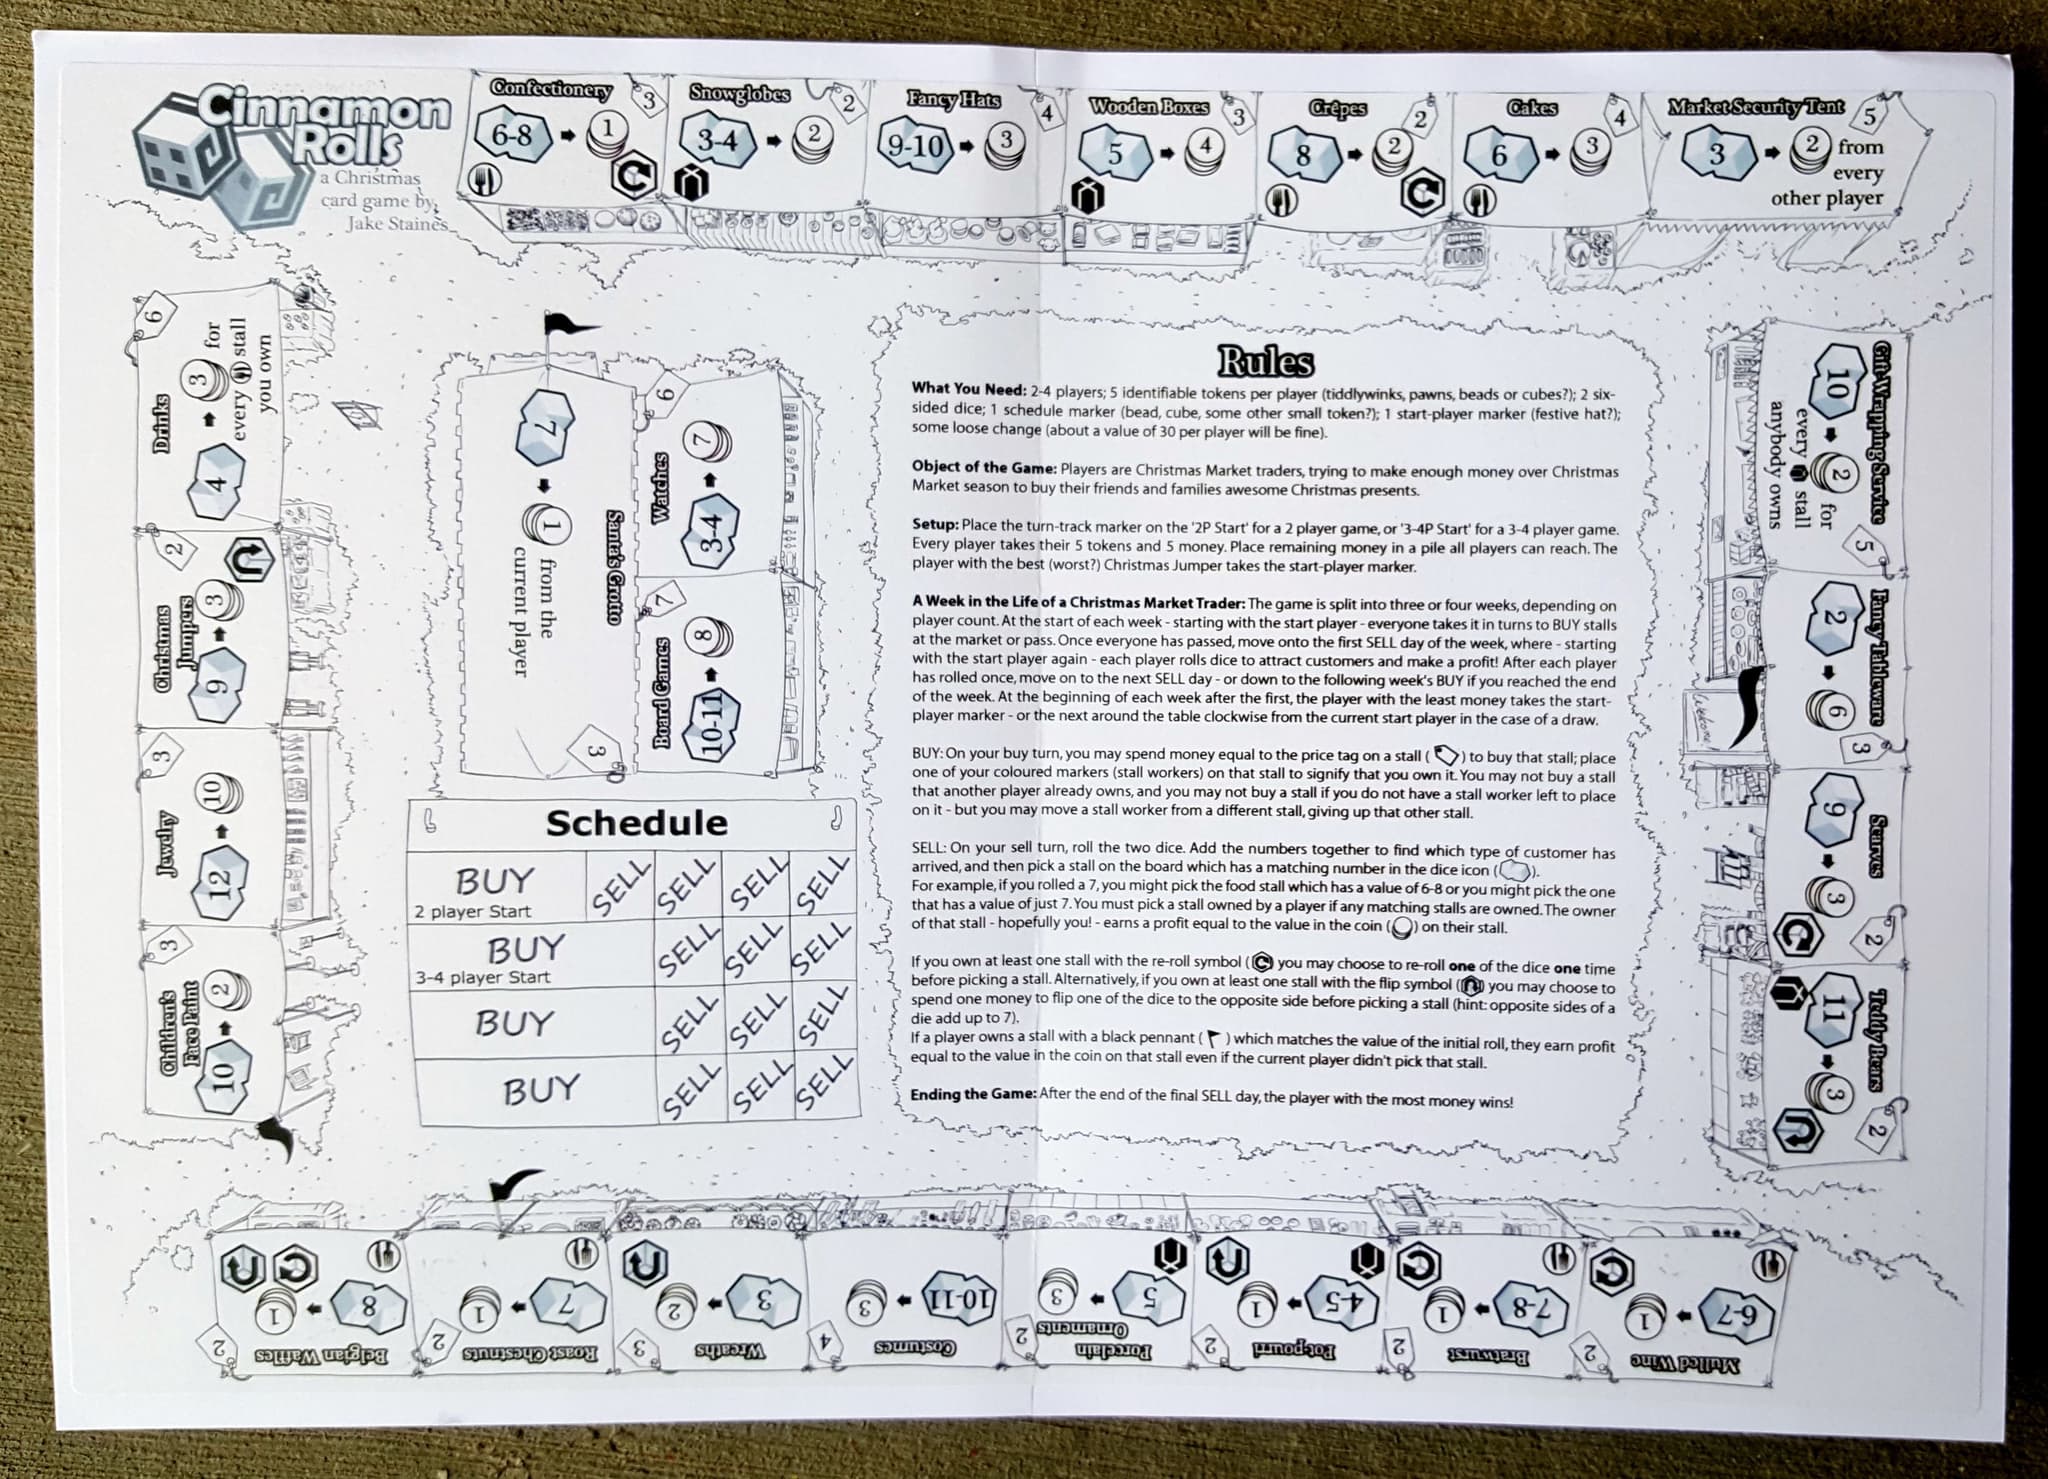 Cinnamon
Rolls
a Christmas
card game by
Jake Staines
Confectionery
3
6-8
1
Snowglobes
2
3-4
2
Fancy Hats
4
9-10
3
Wooden Boxes
3
5
4
Crêpes
2
8
2
Cakes
4
6
3
Market Security Tent
5
3
2 from
every
other player
Drinks
6
4
3 for
every stall
you own
Christmas
Jumpers
2
9
3
Jewelry
3
12
10
Children's
Face Paint
3
10
2
Santa's Grotto
3
7
1 from the
current player
Watches
6
3-4
7
Board Games
7
10-11
8
Schedule
BUY SELL SELL SELL SELL
2 player Start
BUY SELL SELL SELL
3-4 player Start
BUY SELL SELL SELL
BUY SELL SELL SELL
Rules
What You Need: 2-4 players; 5 identifiable tokens per player (tiddlywinks, pawns, beads or cubes?); 2 six-
sided dice; 1 schedule marker (bead, cube, some other small token?); 1 start-player marker (festive hat?);
some loose change (about a value of 30 per player will be fine).
Object of the Game: Players are Christmas Market traders, trying to make enough money over Christmas
Market season to buy their friends and families awesome Christmas presents.
Setup: Place the turn-track marker on the '2P Start' for a 2 player game, or '3-4P Start' for a 3-4 player game.
Every player takes their 5 tokens and 5 money. Place remaining money in a pile all players can reach. The
player with the best (worst?) Christmas Jumper takes the start-player marker.
A Week in the Life of a Christmas Market Trader: The game is split into three or four weeks, depending on
player count. At the start of each week - starting with the start player - everyone takes it in turns to BUY stalls
at the market or pass. Once everyone has passed, move onto the first SELL day of the week, where - starting
with the start player again - each player rolls dice to attract customers and make a profit! After each player
has rolled once, move on to the next SELL day - or down to the following week's BUY if you reached the end
of the week. At the beginning of each week after the first, the player with the least money takes the start-
player marker - or the next around the table clockwise from the current start player in the case of a draw.
BUY: On your buy turn, you may spend money equal to the price tag on a stall ( ) to buy that stall; place
one of your coloured markers (stall workers) on that stall to signify that you own it. You may not buy a stall
that another player already owns, and you may not buy a stall if you do not have a stall worker left to place
on it - but you may move a stall worker from a different stall, giving up that other stall.
SELL: On your sell turn, roll the two dice. Add the numbers together to find which type of customer has
arrived, and then pick a stall on the board which has a matching number in the dice icon ( ).
For example, if you rolled a 7, you might pick the food stall which has a value of 6-8 or you might pick the one
that has a value of just 7. You must pick a stall owned by a player if any matching stalls are owned. The owner
of that stall - hopefully you! - earns a profit equal to the value in the coin ( ) on their stall.
If you own at least one stall with the re-roll symbol ( ) you may choose to re-roll one of the dice one time
before picking a stall. Alternatively, if you own at least one stall with the flip symbol ( ) you may choose to
spend one money to flip one of the dice to the opposite side before picking a stall (hint: opposite sides of a
die add up to 7).
If a player owns a stall with a black pennant ( ) which matches the value of the initial roll, they earn profit
equal to the value in the coin on that stall even if the current player didn't pick that stall.
Ending the Game: After the end of the final SELL day, the player with the most money wins!
Gift-Wrapping Service
5
10
2 for
every stall
anybody owns
Fancy Tableware
3
2
6
Welcome!
Scarves
2
9
3
Teddy Bears
2
11
3
Belgian Waffles
2
8
1
Roast Chestnuts
2
7
1
Wreaths
3
3
2
Costumes
4
10-11
3
Porcelain
Ornaments
2
5
3
Potpourri
2
4-5
1
Bratwurst
2
7-8
1
Mulled Wine
2
6-7
1